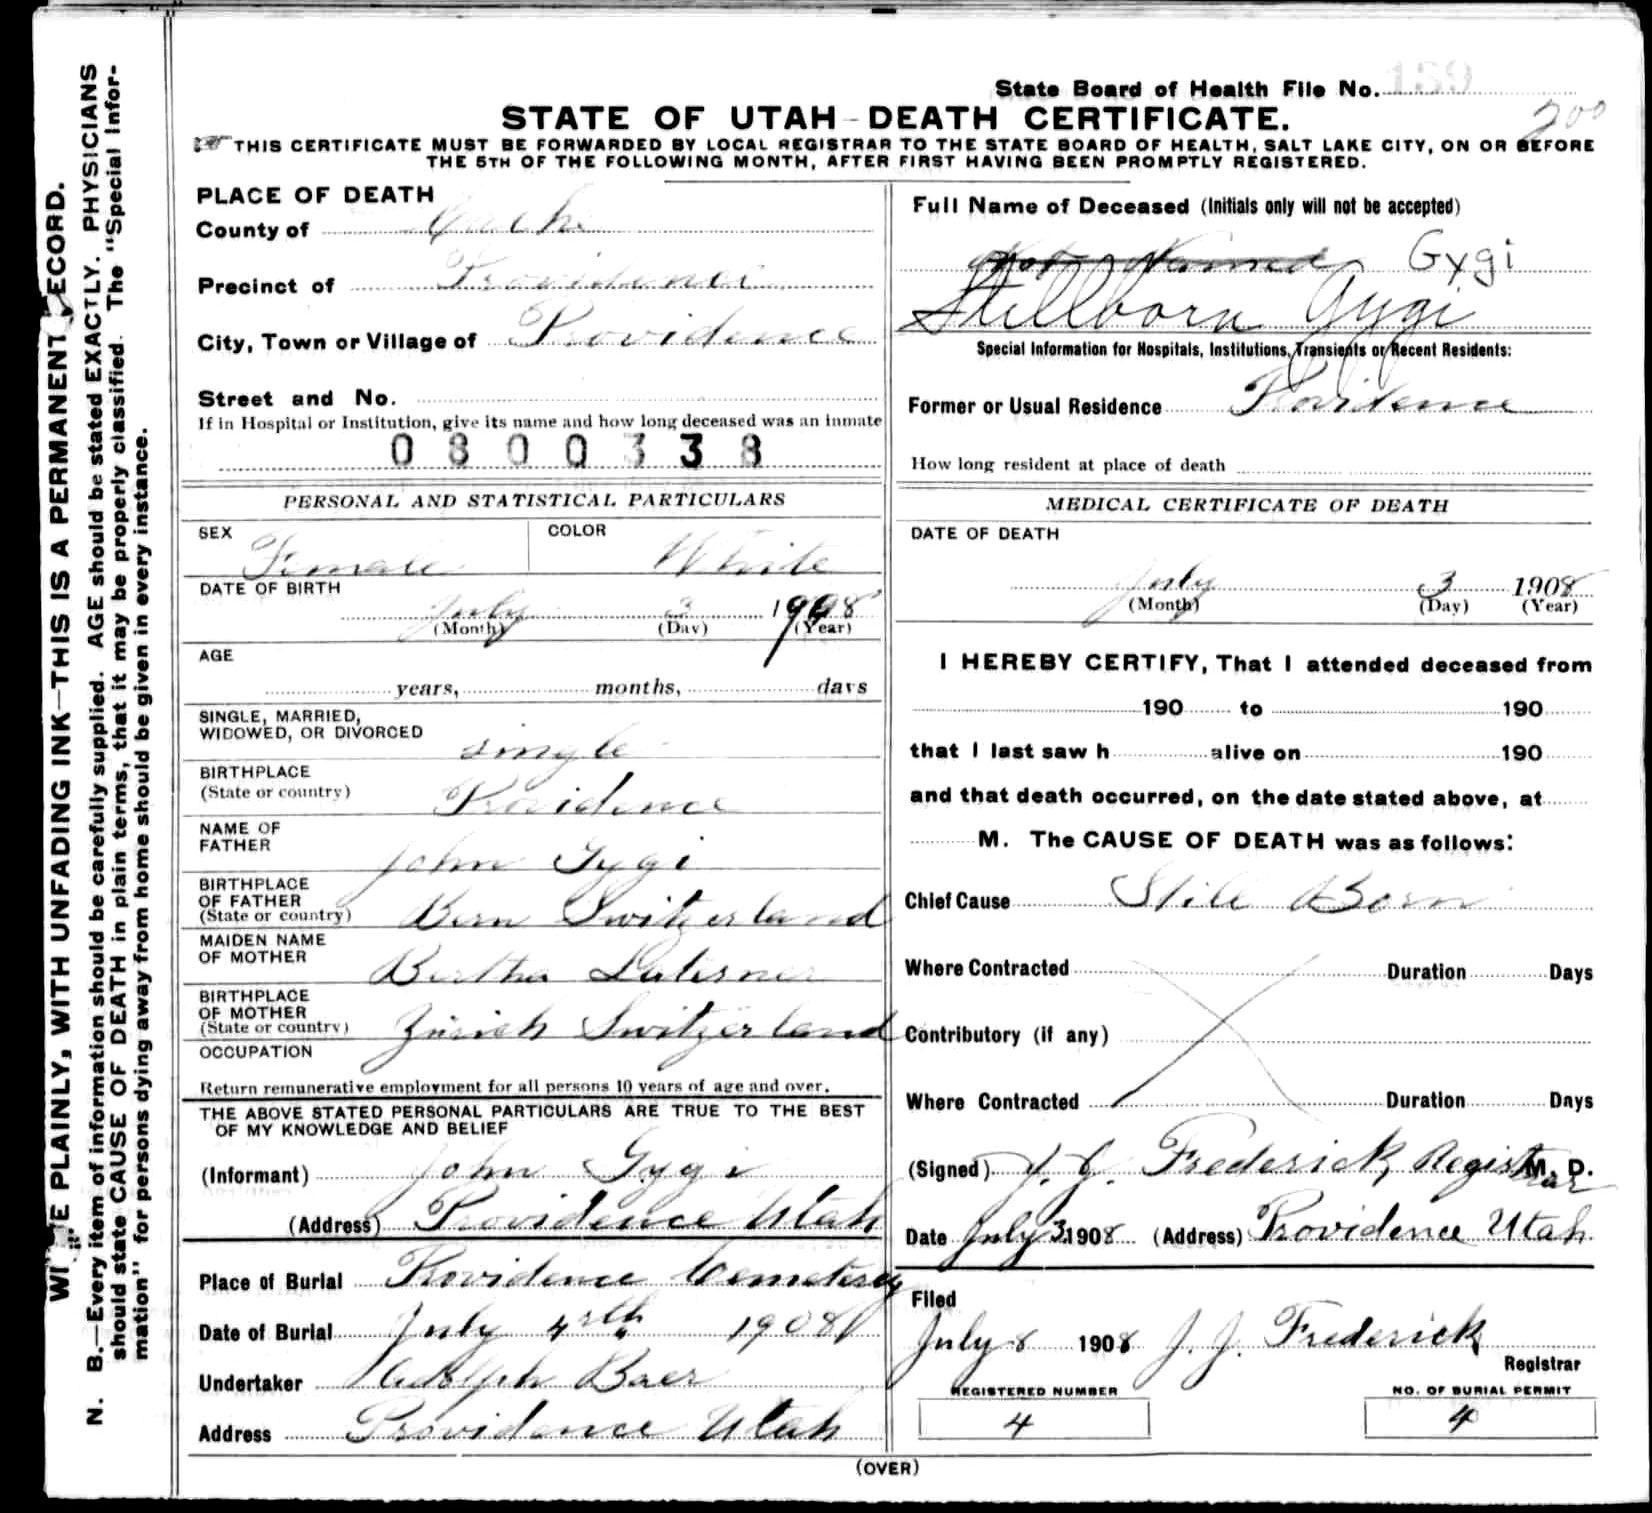 State Board of Health File No. 159
200
STATE OF UTAH - DEATH CERTIFICATE.
THIS CERTIFICATE MUST BE FORWARDED BY LOCAL REGISTRAR TO THE STATE BOARD OF HEALTH, SALT LAKE CITY, ON OR BEFORE
THE 5TH OF THE FOLLOWING MONTH, AFTER FIRST HAVING BEEN PROMPTLY REGISTERED.
PLACE OF DEATH
County of Cache
Precinct of Providence
City, Town or Village of Providence
Street and No.
If in Hospital or Institution, give its name and how long deceased was an inmate
0800338
PERSONAL AND STATISTICAL PARTICULARS
SEX Female COLOR White
DATE OF BIRTH
July 3 1908
(Month) (Day) (Year)
AGE
years, months, days
SINGLE, MARRIED,
WIDOWED, OR DIVORCED single
BIRTHPLACE
(State or country) Providence
NAME OF
FATHER John Gygi
BIRTHPLACE
OF FATHER
(State or country) Bern Switzerland
MAIDEN NAME
OF MOTHER Bertha
BIRTHPLACE
OF MOTHER
(State or country) Zürich Switzerland
OCCUPATION
Return remunerative employment for all persons 10 years of age and over.
THE ABOVE STATED PERSONAL PARTICULARS ARE TRUE TO THE BEST
OF MY KNOWLEDGE AND BELIEF
(Informant) John Gygi
(Address) Providence Utah
Place of Burial Providence Cemetery
Date of Burial July 4th 1908
Undertaker Adolph Baer
Address Providence Utah
Full Name of Deceased (Initials only will not be accepted)
Not Named Gygi
Stillborn Gygi
Special Information for Hospitals, Institutions, Transients or Recent Residents:
Former or Usual Residence Providence
How long resident at place of death
MEDICAL CERTIFICATE OF DEATH
DATE OF DEATH
July 3 1908
(Month) (Day) (Year)
I HEREBY CERTIFY, That I attended deceased from
190 to 190
that I last saw h alive on 190
and that death occurred, on the date stated above, at
M. The CAUSE OF DEATH was as follows:
Chief Cause Still Born
Where Contracted Duration Days
Contributory (if any)
Where Contracted Duration Days
(Signed) J. J. Frederick Registrar M. D.
Date July 3 1908 (Address) Providence Utah
Filed
July 8 1908 J. J. Frederick
Registrar
REGISTERED NUMBER
4
NO. OF BURIAL PERMIT
4
(OVER)
WRITE PLAINLY, WITH UNFADING INK—THIS IS A PERMANENT RECORD.
N. B.—Every item of information should be carefully supplied. AGE should be stated EXACTLY. PHYSICIANS
should state CAUSE OF DEATH in plain terms, that it may be properly classified. The "Special Infor-
mation" for persons dying away from home should be given in every instance.